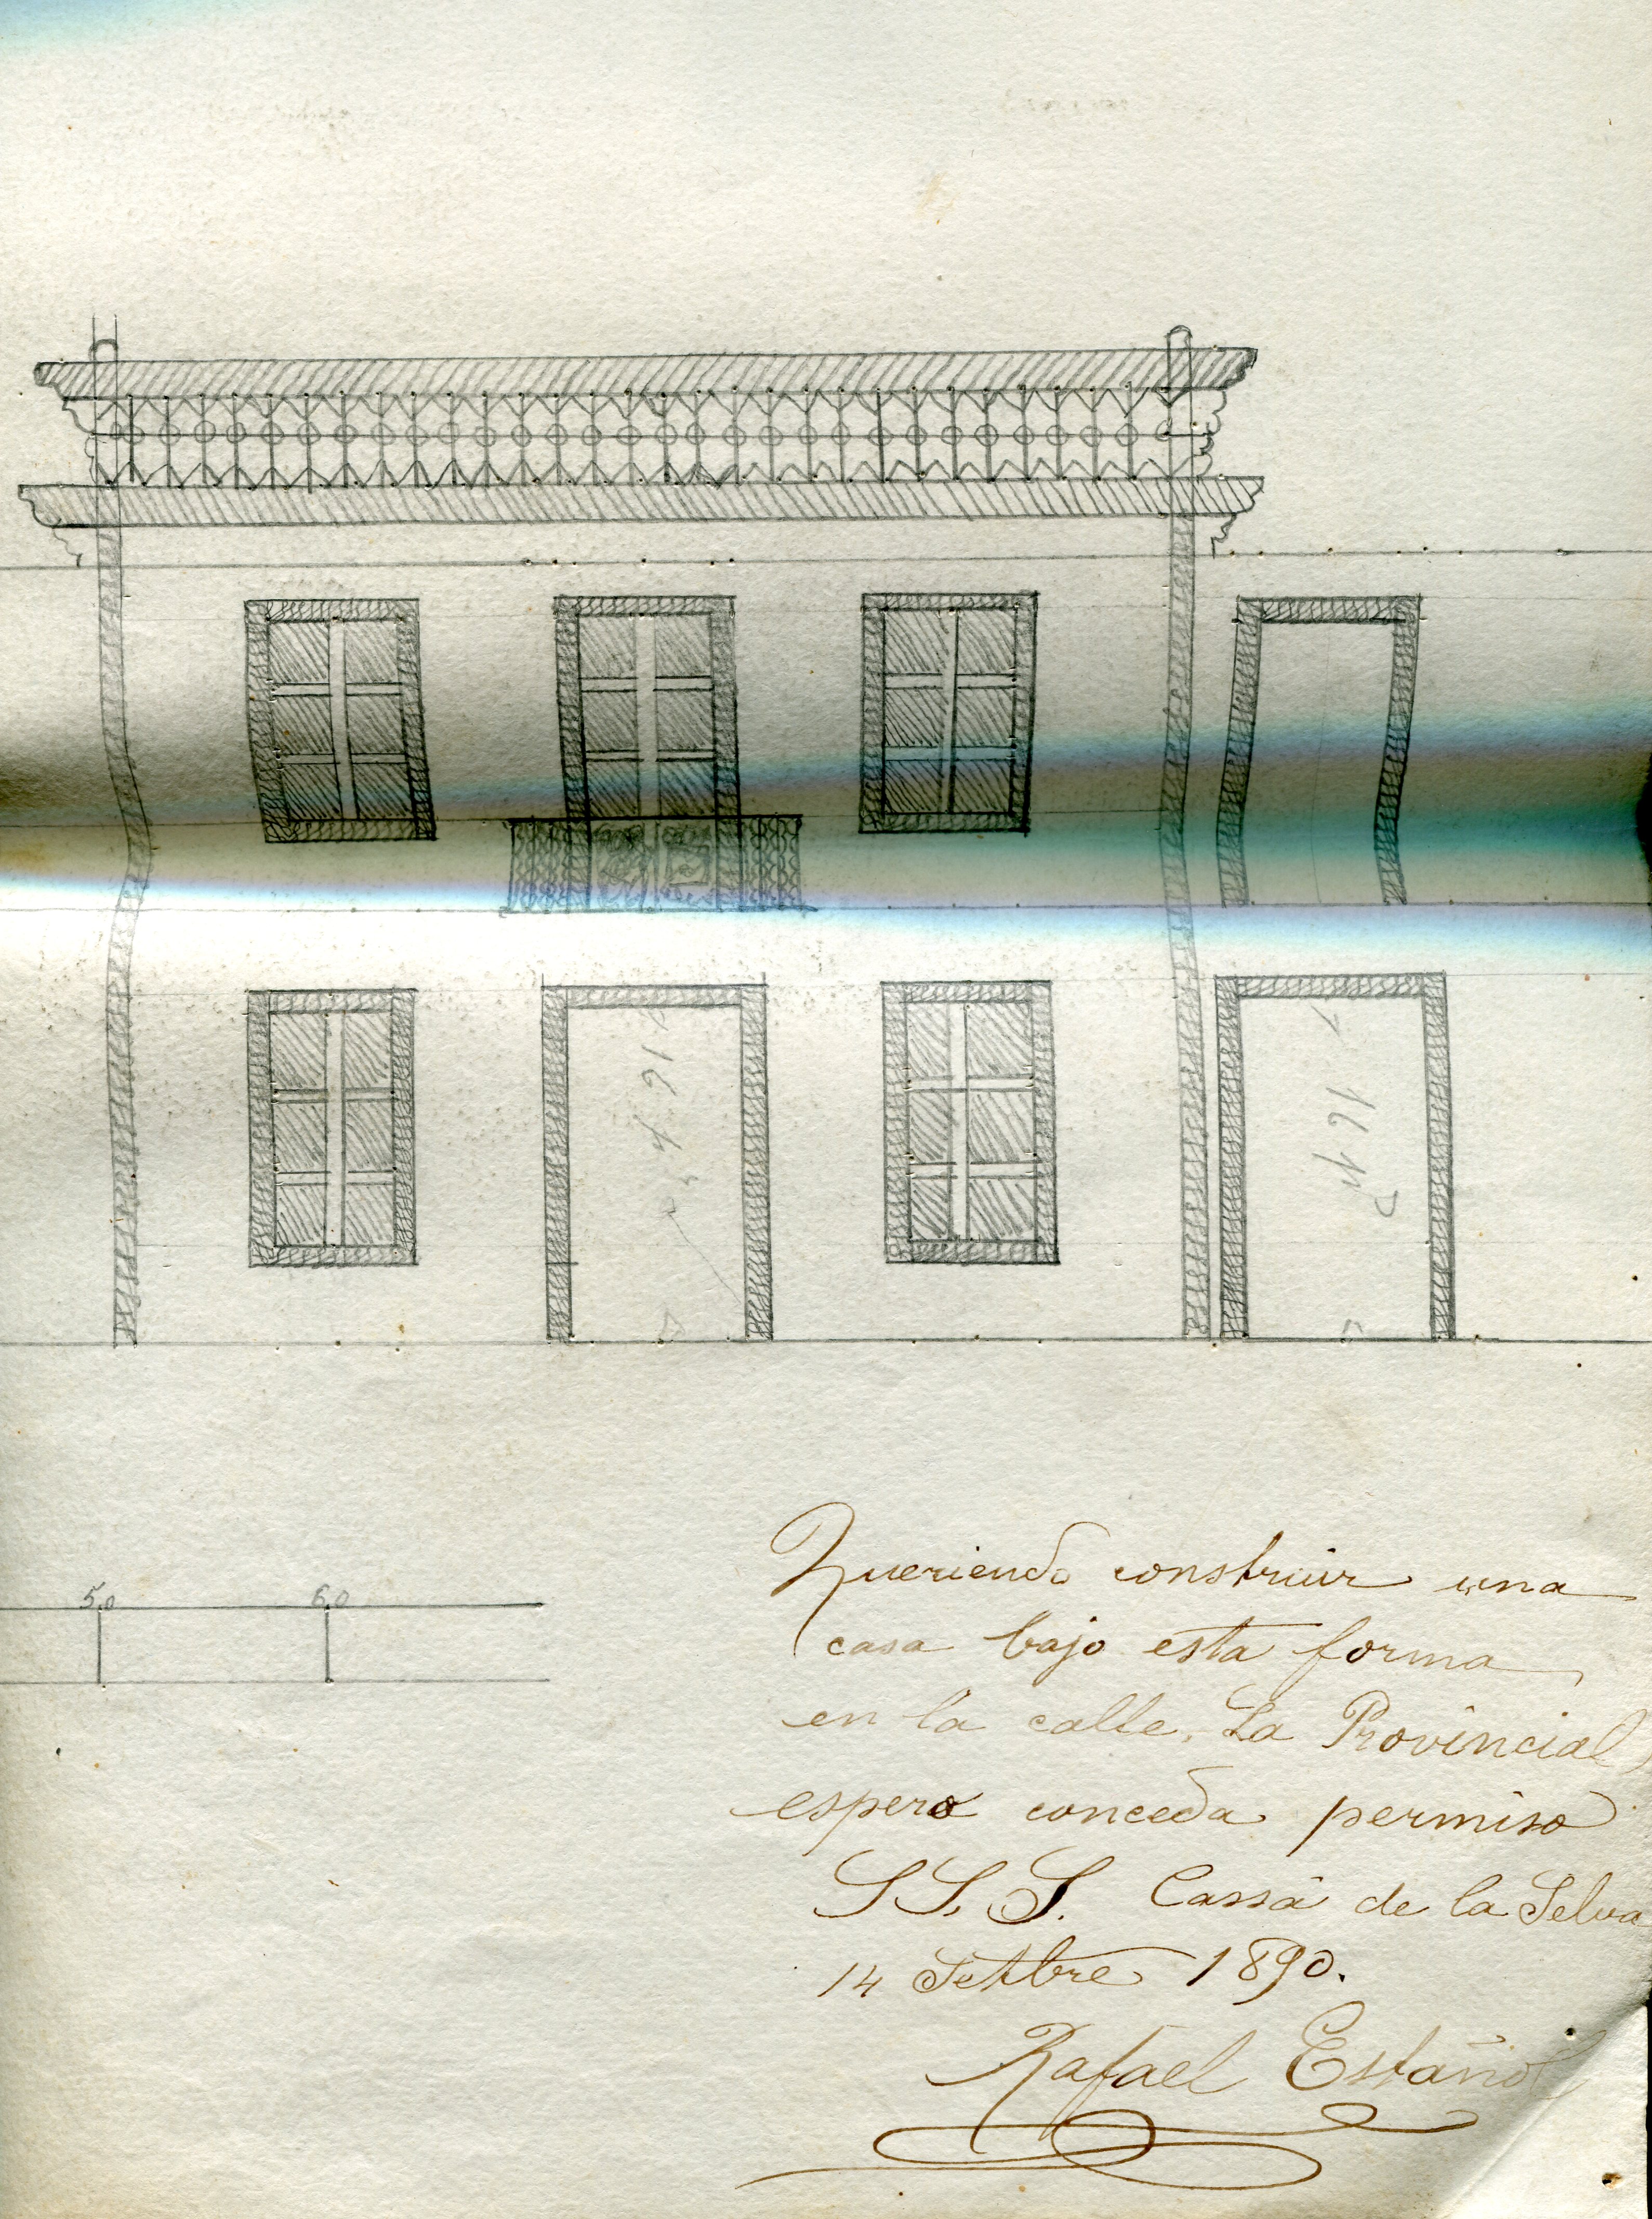 5,0 6,0
Queriendo construir una
casa bajo esta forma
en la calle, La Provincial
espero conceda permiso
S S. S. Cassá de la Selva
14 Setbre 1890.
Rafael Estañol